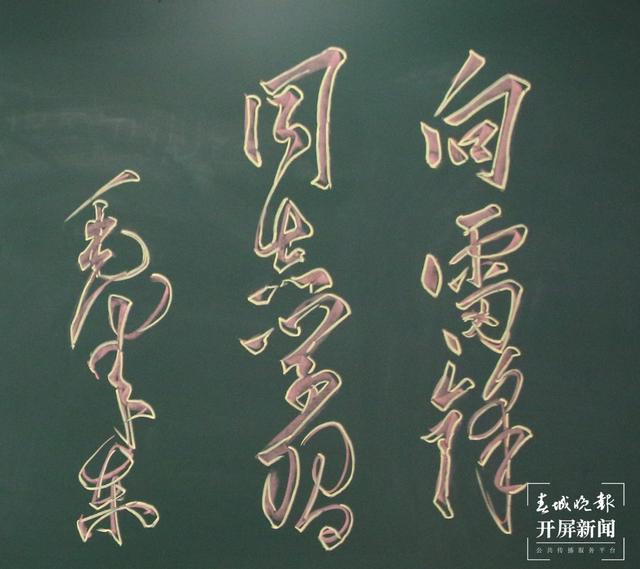 向雷锋
同志学习
毛泽东
春城晚报
开屏新闻
公共传播服务平台